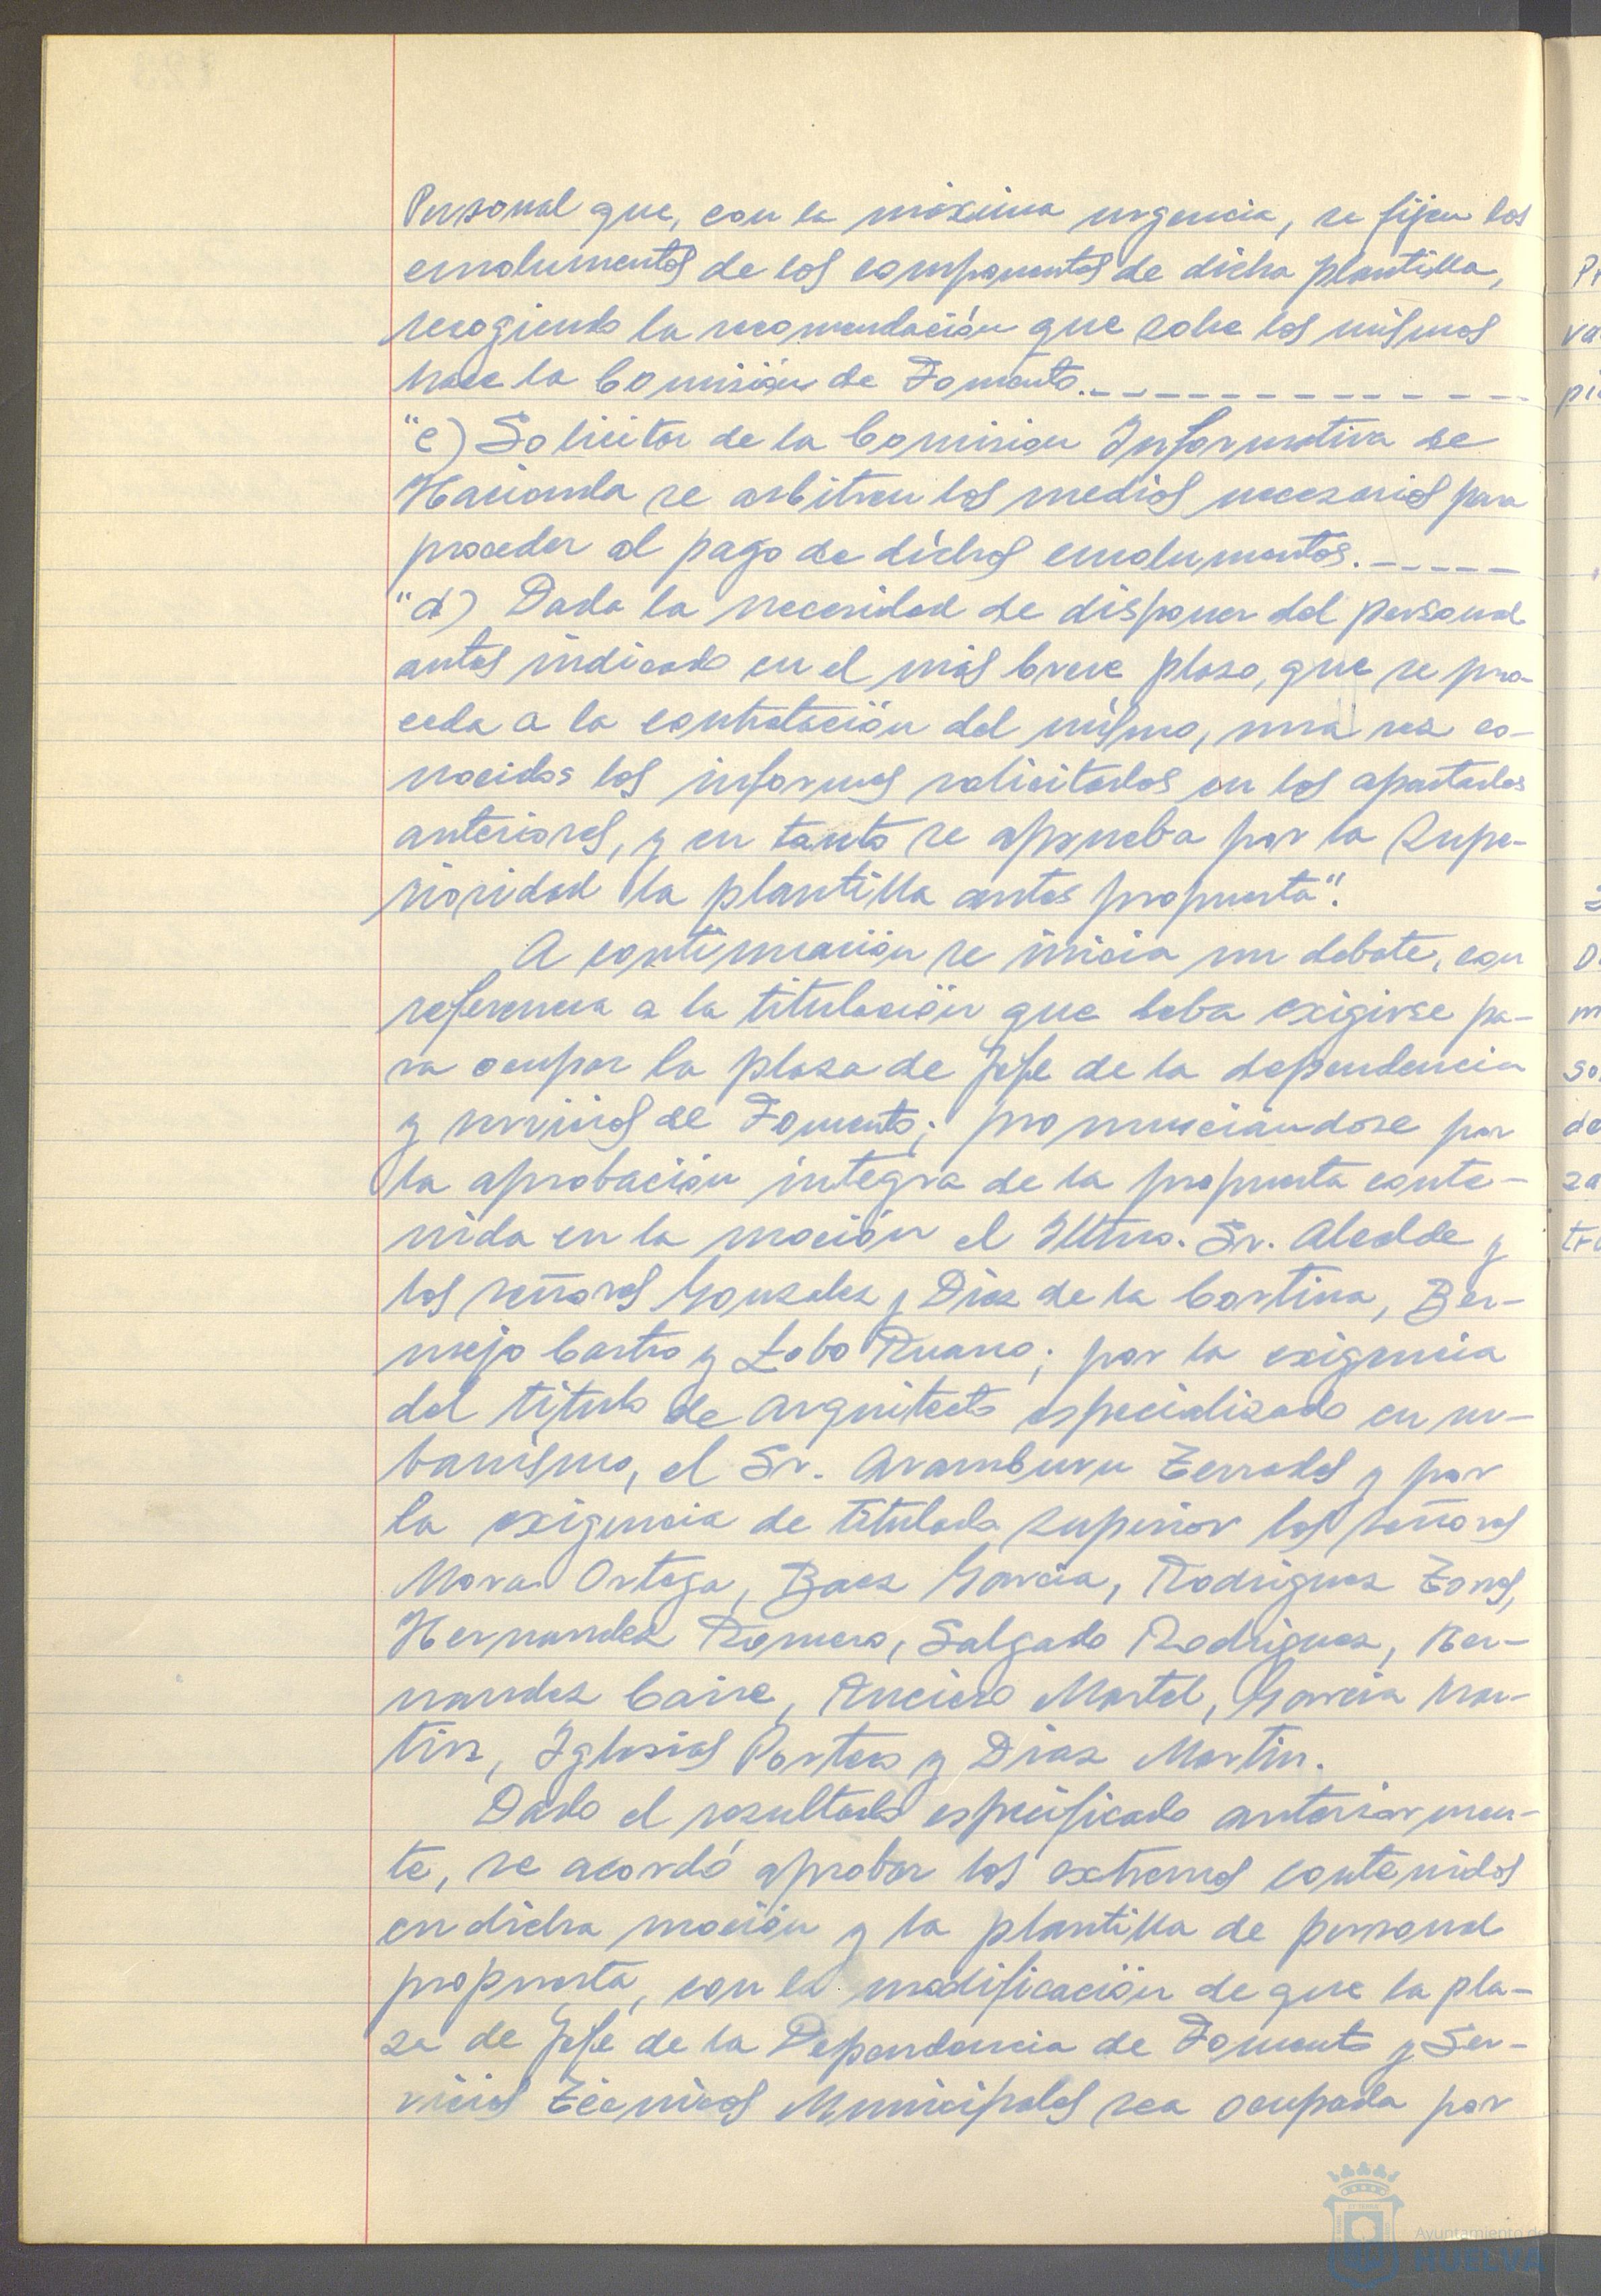 Personal que, con la máxima urgencia, se fijen los
emolumentos de los componentes de dicha plantilla,
recogiendo la recomendación que sobre los mismos
hace la Comisión de Fomento.
"c) Solicitar de la Comision Informativa de
Hacienda se arbitren los medios necesarios para
proceder al pago de dichos emolumentos.
"d) Dada la necesidad de disponer del personal
antes indicado en el más breve plazo, que se pro-
ceda a la contratación del mismo, una vez co-
nocidos los informes solicitados en los apartados
anteriores, y en tanto se aprueba por la Supe-
rioridad la plantilla antes propuesta".
A continuación se inicia un debate, con
referencia a la titulación que deba exigirse pa-
ra ocupar la plaza de Jefe de la dependencia
y servicios de Fomento; pronunciandose por
la aprobación integra de la propuesta conte-
nida en la moción el Iltmo. Sr. Alcalde y
los señores Gonzalez y Diaz de la Cortina, Ber-
mejo Castro y Lobo Ruano; por la exigencia
del titulo de arquitecto especializado en ur-
banismo, el Sr. Aramburu Terrades y por
la exigencia de titulado superior los señores
Mora Ortega, Baez Garcia, Rodriguez Torres,
Hernandez Romero, Salgado Rodriguez, Her-
nandez Caire, Anciero Martel, Garcia Mar-
tin, Iglesias Porteo y Diaz Martin.
Dado el resultado especificado anteriormen-
te, se acordó aprobar los extremos contenidos
en dicha moción y la plantilla de personal
propuesta, con la modificación de que la pla-
za de Jefe de la Dependencia de Fomento y Ser-
vicios Técnicos Municipales sea ocupada por
Ayuntamiento de
HUELVA